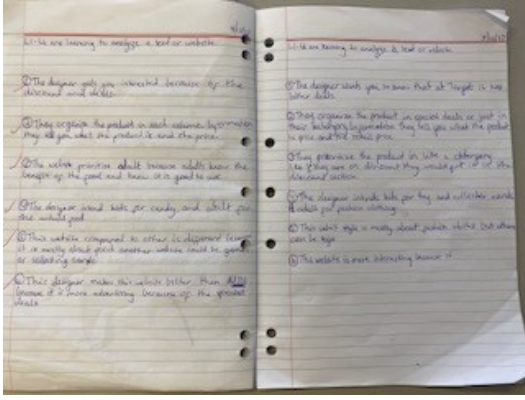 LI: We are learning to analyze a text or website.
① The designer gets you interested because of the
discount and deals.
② They organise the product in each column by information
they tell you what the product is and the price.
③ The website prioritise adult because adults know the
benefit of the food and know it is good to use
④ The designer intend kids for candy and adult for
the actual food
⑤ This website compared to other is different because
it is mostly about food another website could be
or selling
⑥ This designer makes this website better than ALDI
because it is more advertising because of the special
deals
LI: We are learning to analyze a text or website.
① The designer wants you to know that at Target is
better deals
② They organise the product in special deals or just in
their category by information they tell you what the product
is price and the price.
③ They the product in like a category
like if they are on discount they would put it in the
discount section.
④ The designer intends kids for toy and collector
adults for fashion clothing
⑤ This website style is mostly about fashion whilst but others
can be
⑥ This website is more interesting because it